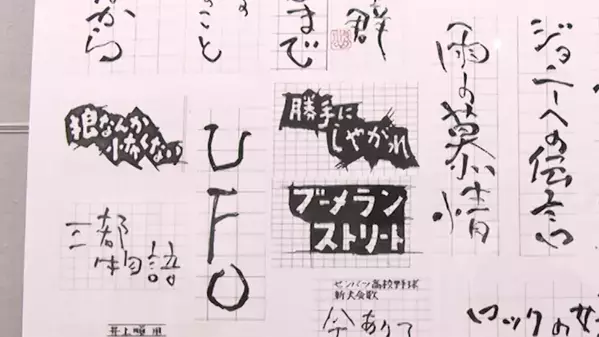 ジョニーへの伝言
雨の慕情
群
まで
こと
から
狼なんか
怖くない
UFO
勝手に
しやがれ
ブーメラン
ストリート
三都
物語
井上順用
センバツ高校野球
新大会歌
今ありて
ロックの